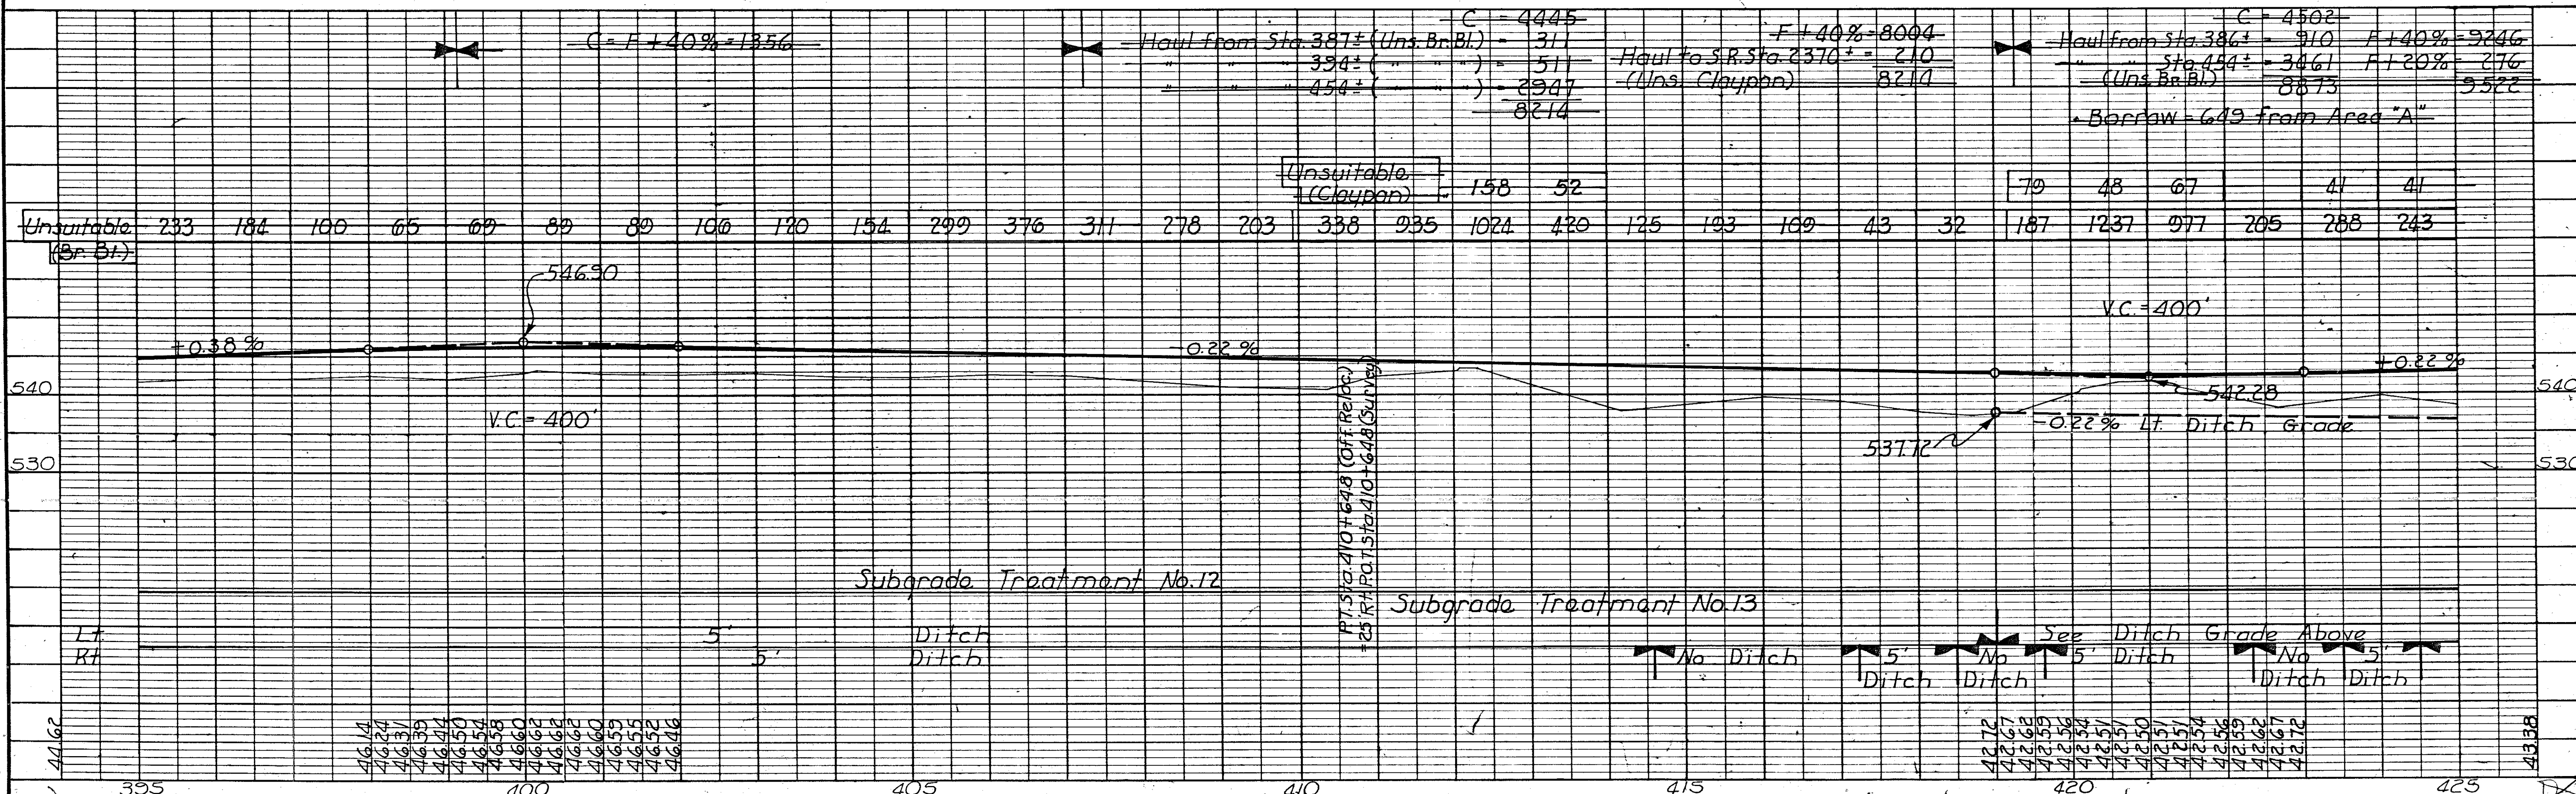 C = F + 40% = 1356
C = 4445
Haul from Sta. 387± (Uns. Br. Bl.) = 311
" " " 394± ( " " " ) = 511
" " " 454± ( " " " ) = 2947
8214
F + 40% = 8004
Haul to S.R. Sta. 2370± = 210
(Uns. Claypan) 8214
C = 4502
Haul from Sta. 386± = 910 F + 40% = 9246
" " Sta. 454± = 3461 F + 20% = 276
(Uns. Br. Bl.) 8873 9522
Borrow = 649 from Area "A"
Unsuitable
(Claypan) 158 52 79 48 67 41 41
Unsuitable 233 184 100 65 69 89 89 106 120 154 299 376 311 278 203 338 935 1024 420 125 193 109 43 32 187 1237 977 205 288 243
(Br. Bl.)
546.90
V.C. = 400'
+0.38%
-0.22%
+0.22%
540
540
542.28
V.C. = 400'
-0.22% Lt. Ditch Grade
537.72
530
530
P.T. Sta. 410+64.8 (Off. Reloc.)
= 25' Rt. P.O.T. Sta. 410+64.8 (Survey)
Subgrade Treatment No. 12
Subgrade Treatment No. 13
Lt. 5' Ditch See Ditch Grade Above
Rt. 5' Ditch No Ditch 5' No 5' Ditch No 5'
Ditch Ditch Ditch Ditch
44.62 46.14 46.24 46.31 46.39 46.44 46.50 46.54 46.58 46.60 46.62 46.62 46.62 46.60 46.59 46.55 46.52 46.46 42.72 42.67 42.62 42.59 42.56 42.54 42.51 42.51 42.50 42.51 42.51 42.54 42.56 42.59 42.62 42.67 42.72 43.38
395 400 405 410 415 420 425